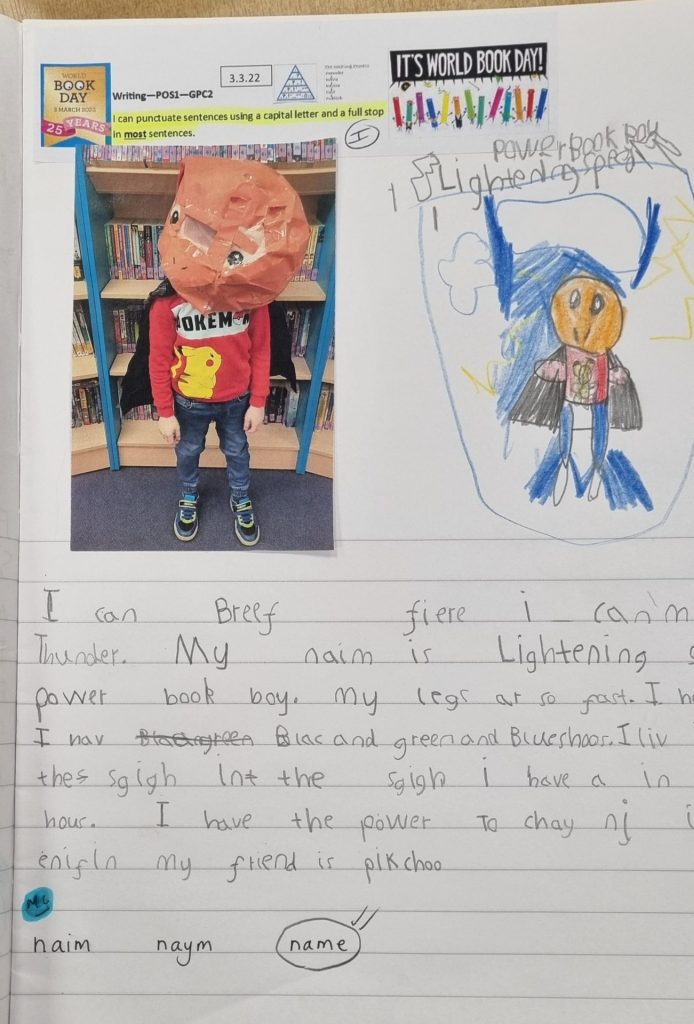 WORLD
BOOK
DAY
3 MARCH 2022
25 YEARS
Writing—POS1—GPC2
3.3.22
I can punctuate sentences using a capital letter and a full stop
in most sentences.
I
IT'S WORLD BOOK DAY!
power book boy
Lightening
POKEM N
I can Breef fiere i can m
Thunder. My naim is Lightening
power book boy. My legs ar so fast. I h
I hav Blac and green and Blueshoos. I liv
the sgigh int the sgigh i have a in
hous. I have the power To chay nj i
enifin my friend is pikchoo
naim naym name